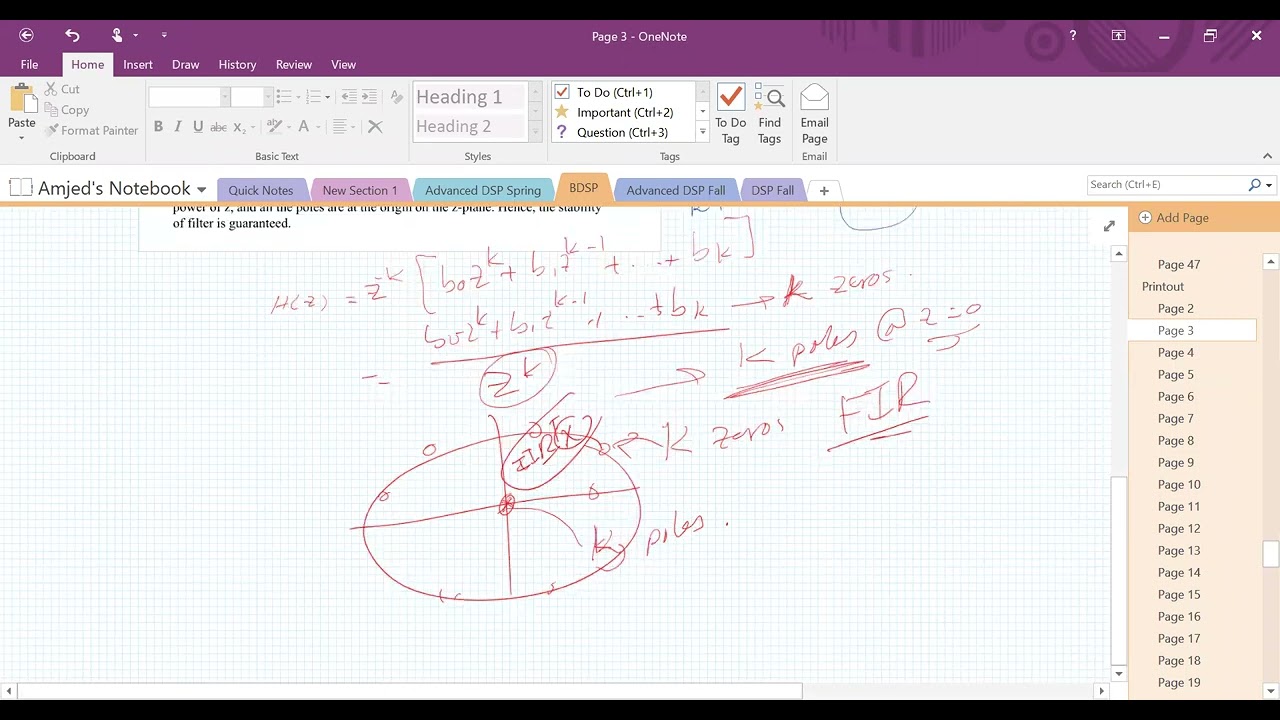 Page 3 - OneNote
?
File Home Insert Draw History Review View
Paste
Cut
Copy
Format Painter
Clipboard
B I U abc X₂ A
Basic Text
Heading 1
Heading 2
Styles
To Do (Ctrl+1)
Important (Ctrl+2)
? Question (Ctrl+3)
Tags
To Do Tag
Find Tags
Email Page
Email
Amjed's Notebook
Quick Notes
New Section 1
Advanced DSP Spring
BDSP
Advanced DSP Fall
DSP Fall
+
Search (Ctrl+E)
power of z, and all the poles are at the origin on the z-plane. Hence, the stability
of filter is guaranteed.
H(z) = z^-k [b0 z^k + b1 z^k-1 + ... + bk]
= b0 z^k + b1 z^k-1 + ... + bk → K zeros.
z^k → K poles @ z=0
FIR
IIR(x)
K zeros
K poles.
Add Page
Page 47
Printout
Page 2
Page 3
Page 4
Page 5
Page 6
Page 7
Page 8
Page 9
Page 10
Page 11
Page 12
Page 13
Page 14
Page 15
Page 16
Page 17
Page 18
Page 19